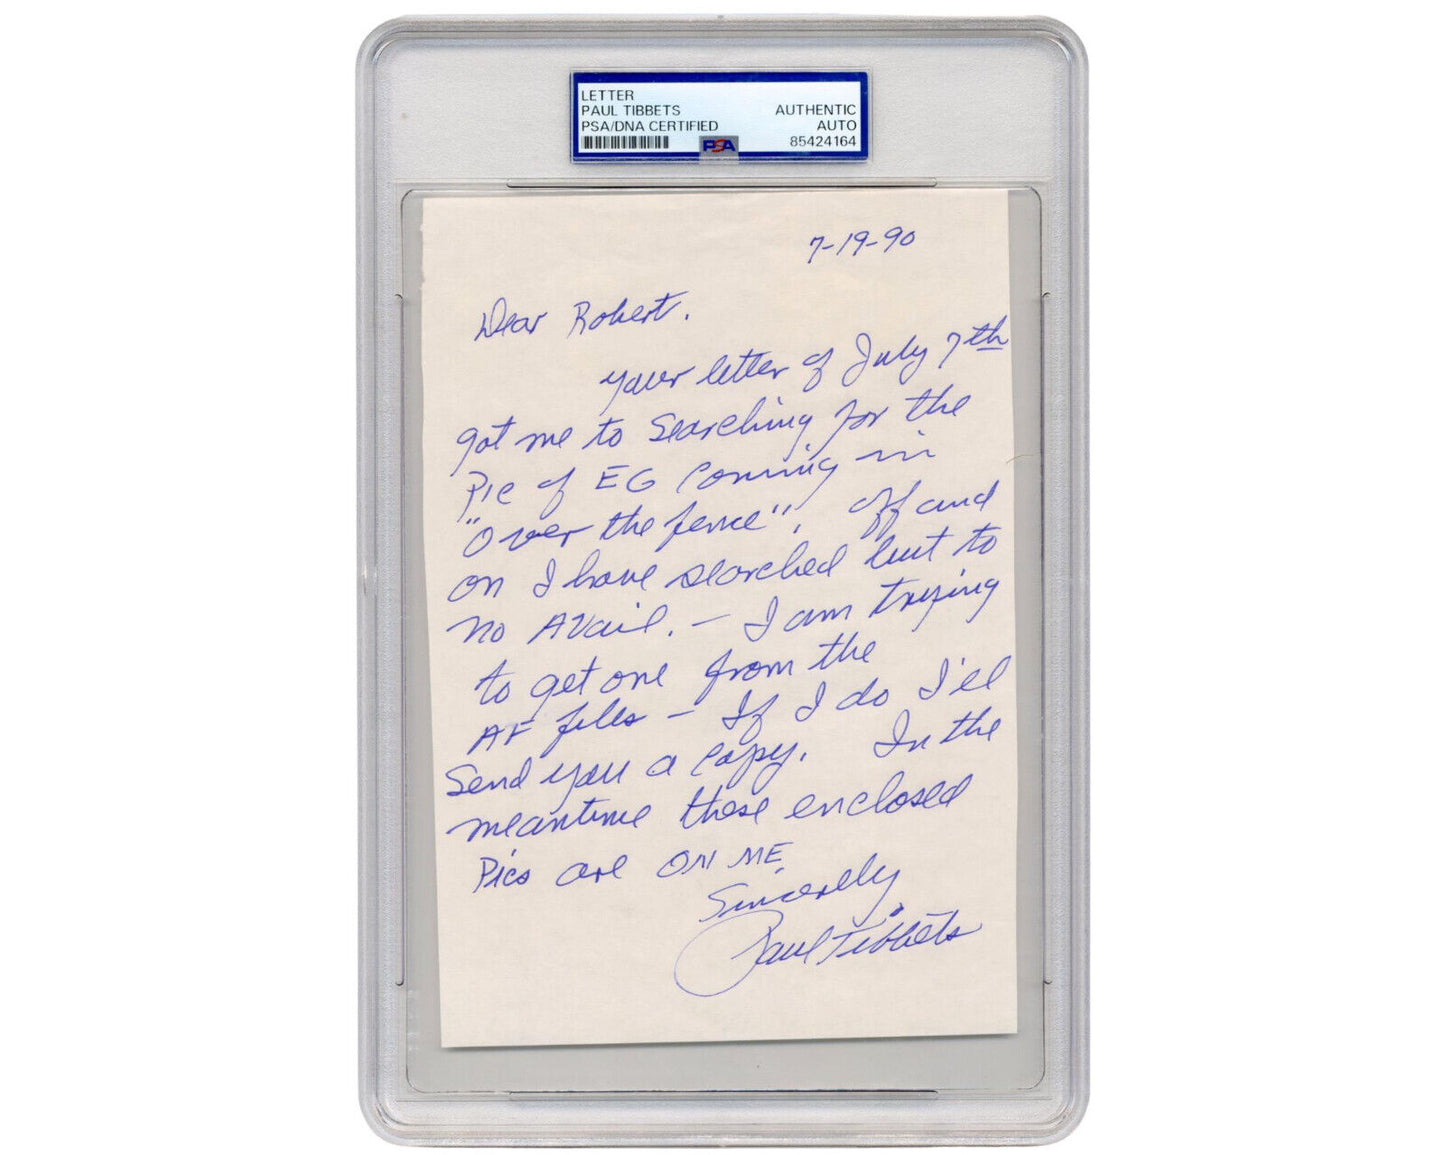 LETTER
PAUL TIBBETS AUTHENTIC
PSA/DNA CERTIFIED AUTO
PSA 85424164
7-19-90
Dear Robert.
your letter of July 7th
got me to searching for the
Pic of EG coming in
"Over the fence". Off and
on I have searched but to
no AVail. - I am trying
to get one from the
AF files - If I do I'll
send you a copy. In the
meantime these enclosed
Pics are ON ME
Sincerely
Paul Tibbets